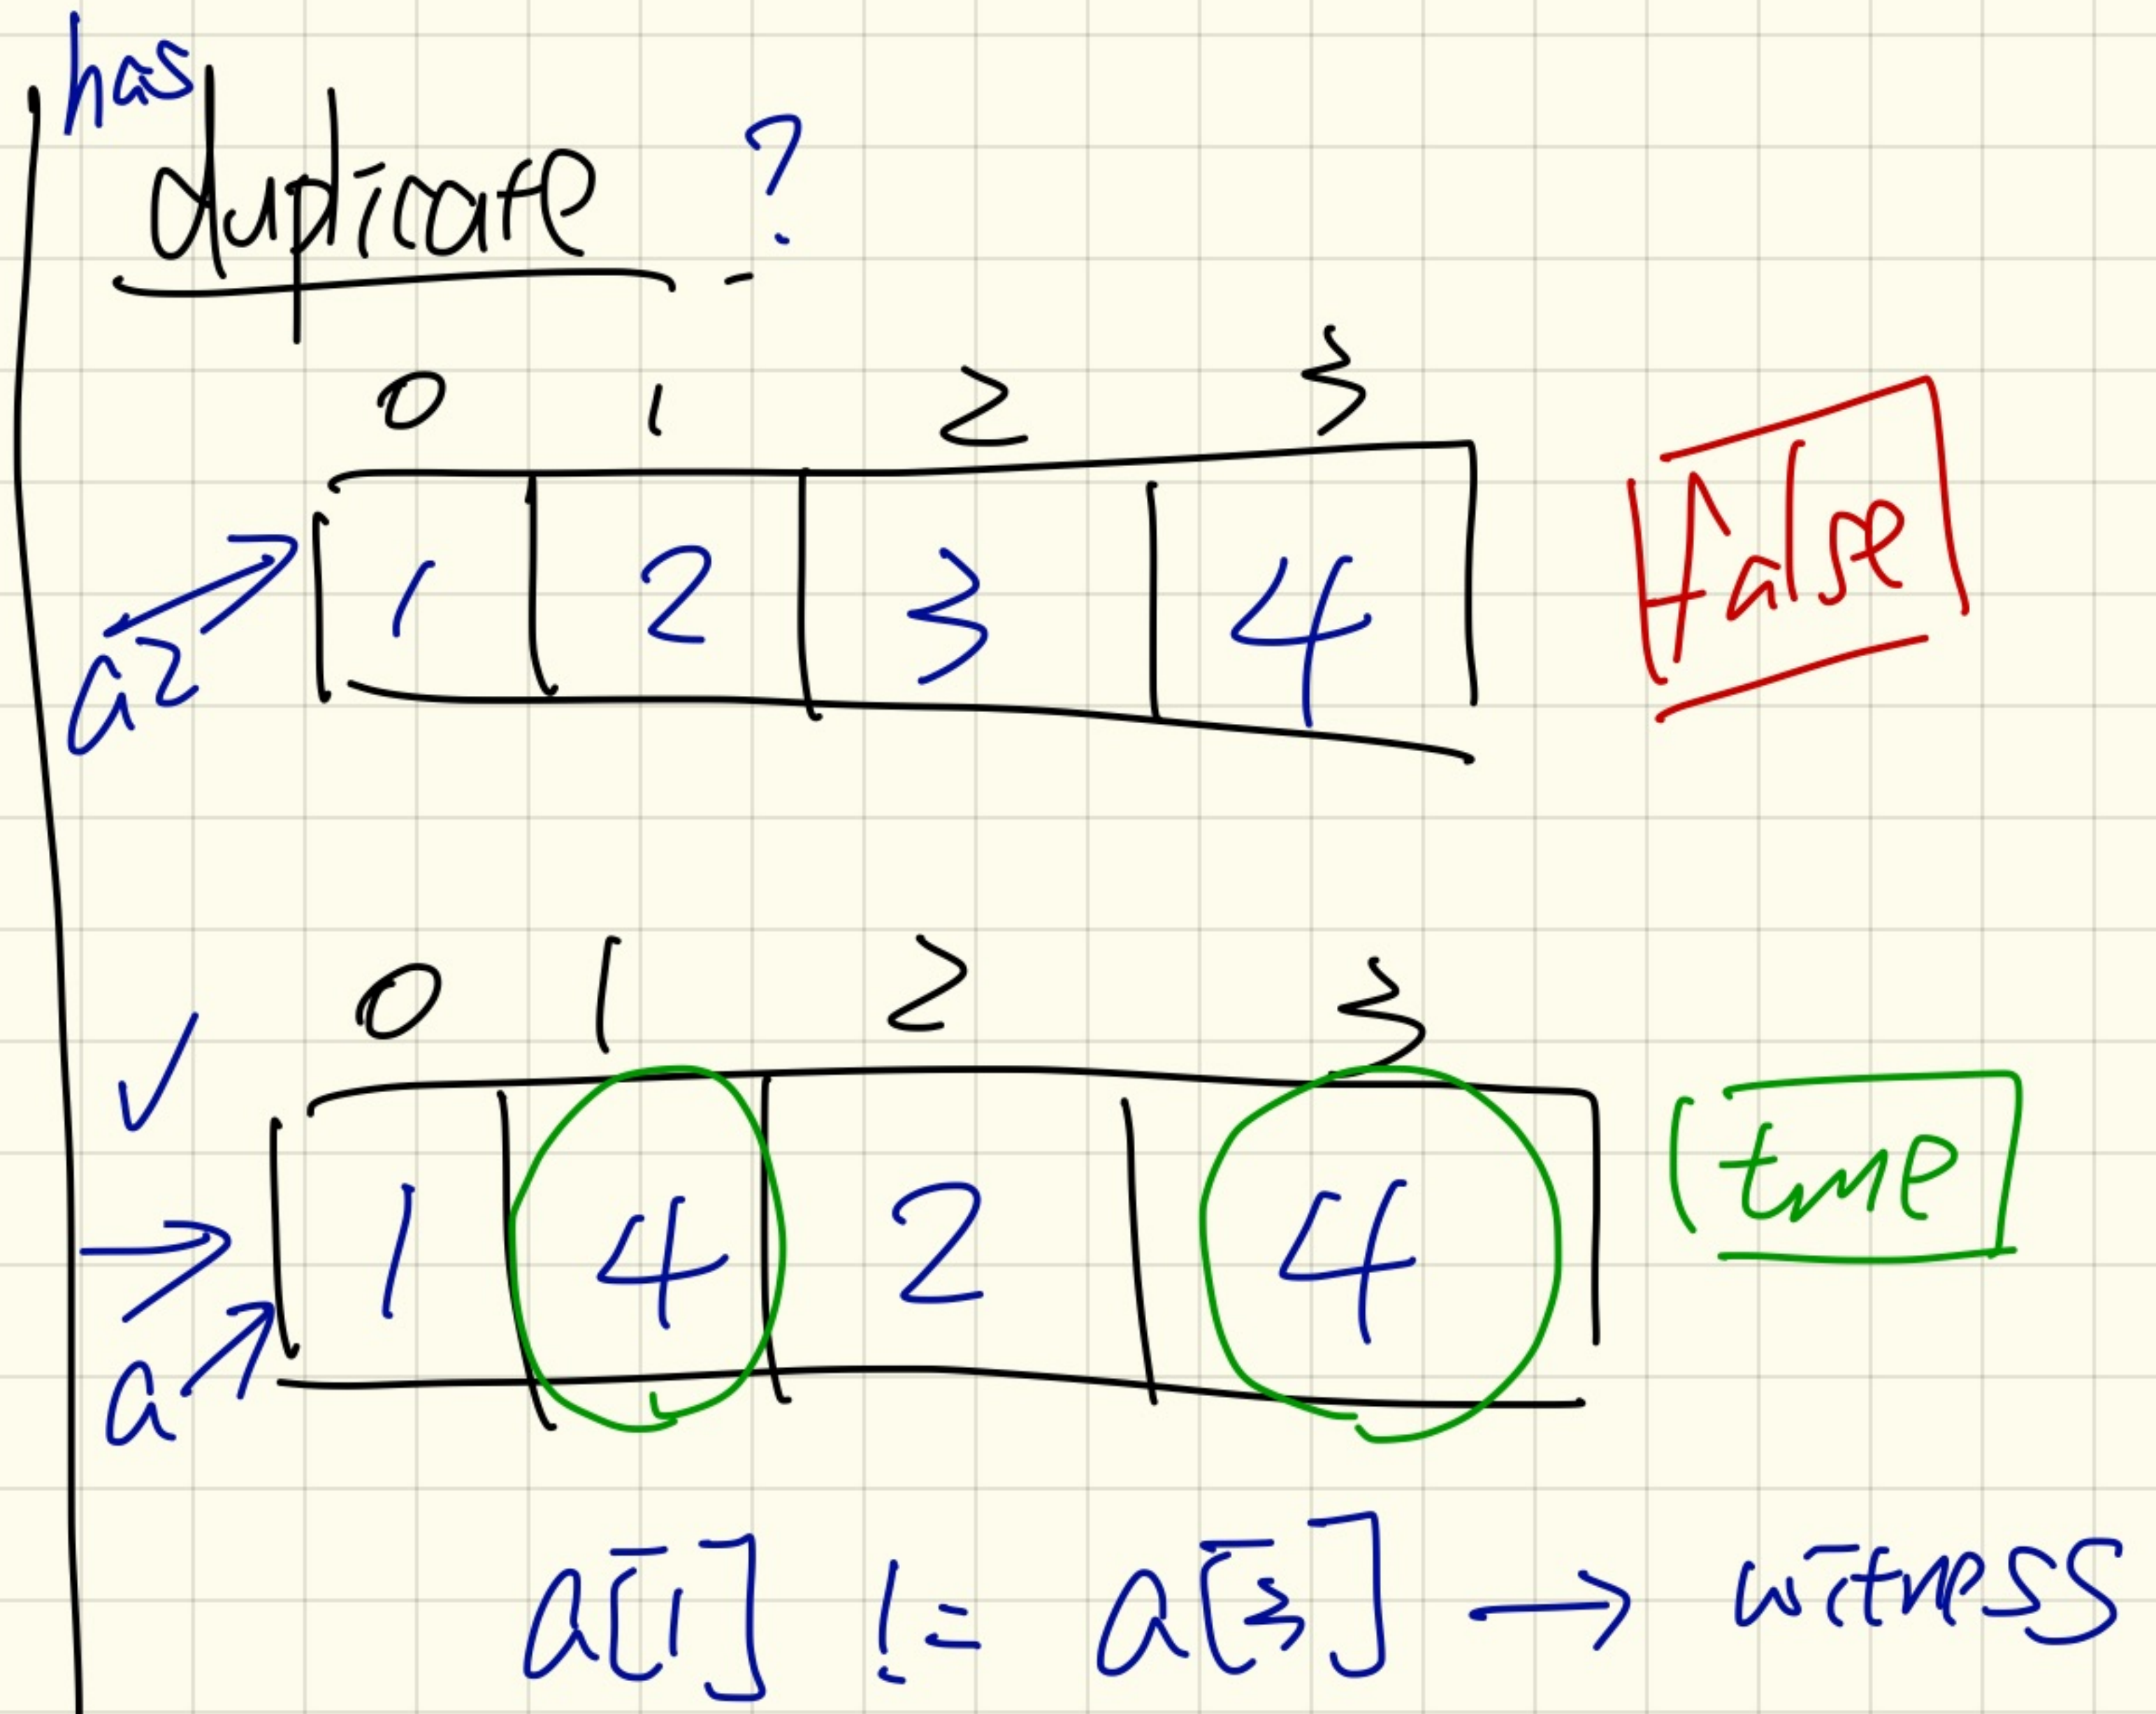 has
duplicate ?
0 1 2 3
a2 1 2 3 4 false
0 1 2 3
1 4 2 4 true
a
a[1] != a[3] → witness